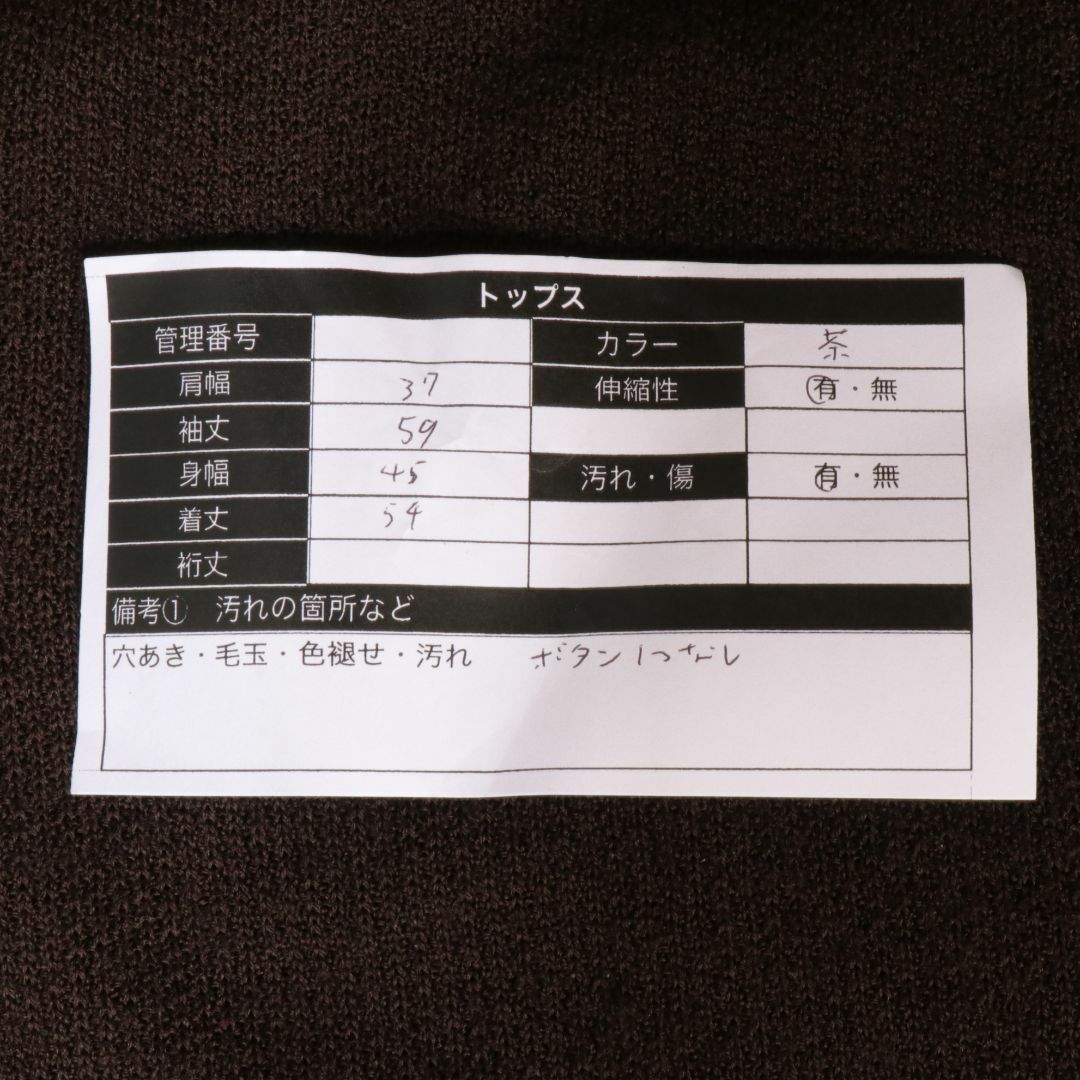 トップス
管理番号 カラー 茶
肩幅 37 伸縮性 有・無
袖丈 59
身幅 45 汚れ・傷 有・無
着丈 54
裄丈
備考① 汚れの箇所など
穴あき・毛玉・色褪せ・汚れ ボタン1つなし